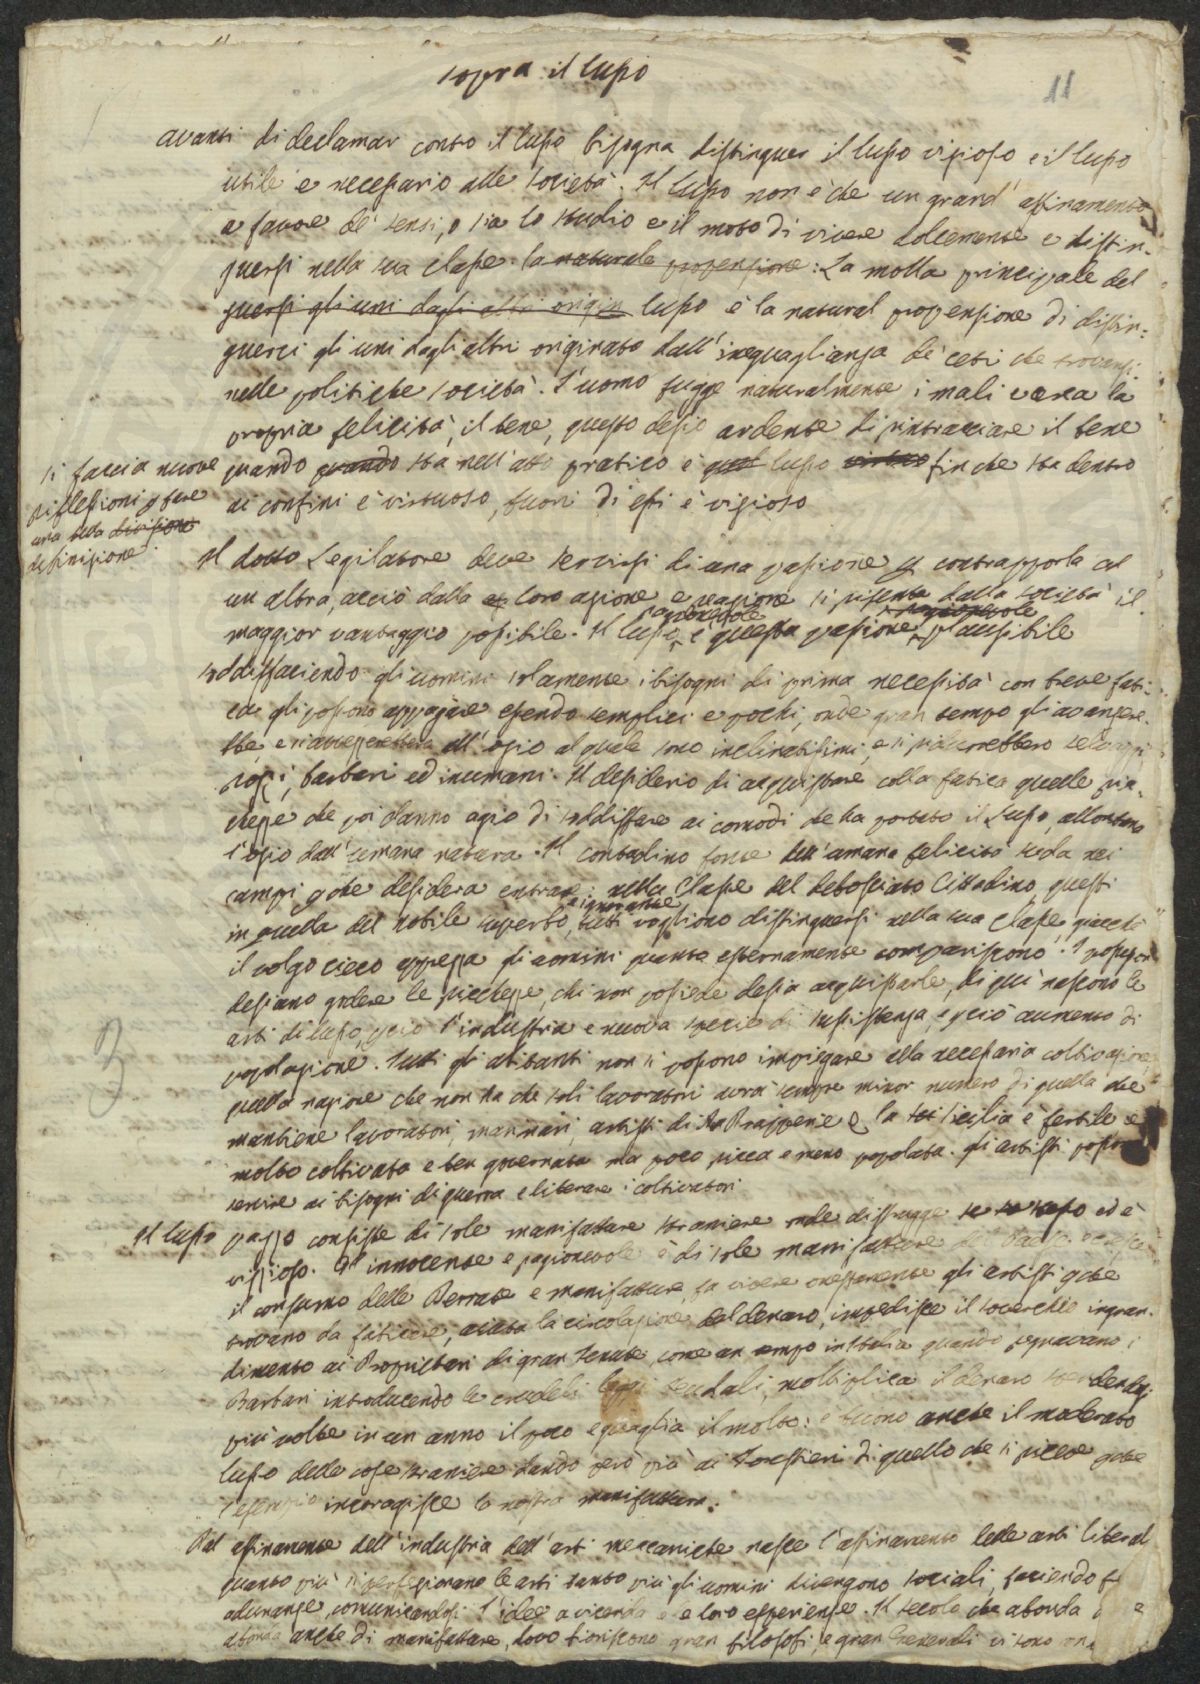 sopra il lusso
11
avanti di declamar contro il lusso bisogna distinguer il lusso vizioso e il lusso
utile e necessario alle società. Il lusso non è che un grand' affinamento
a favore de' sensi, o sia lo studio e il modo di vivere dolcemente e distin-
guersi nella sua classe. la naturale propensione: La molla principale del
guersi gli uni dagli altri origin lusso è la natural propensione di distin-
guerci gli uni dagli altri originato dall' inequaglianza de' ceti che trovansi
nelle politiche società. L'uomo fugge naturalmente i mali cerca la
propria felicità, il bene, questo desio ardente di rintracciare il bene
quando quando sta nell' atto pratico è quel lusso virtuoso finche sta dentro
ai confini è virtuoso, fuori di essi è vizioso
si faccia nuove
riflessioni p fare
una vera divisione
definizione.
Il dotto Legislatore deve servirsi di una passione p contrapporla ad
un altra, acciò dalla loro azione e reazione si risenta dalla società il
maggior vantaggio possibile. Il lusso ragionevole è questa passione ragionevole plausibile
soddisfaciendo gli uomini solamente i bisogni di prima necessità con breve fati-
ca gli possono appagare essendo semplici e pochi, onde gran tempo gli avanzere-
bbe, all' ozio al quale sono inclinatissimi, e si ridurrebbero selvaggi
rozzi, barbari ed inumani. Il desiderio di acquistare colla fatica quelle ric-
chezze che poi danno agio di soddisfare ai comodi che ha portato il Lusso, allontana
l'ozio dall' umana natura. Il contadino fonte dell' umana felicità suda nei
campi p che desidera entrare nella Classe del debosciato Cittadino, questi
in quella del nobile superbo e ignorante, tutti vogliono distinguersi nella sua classe, giacchè
il volgo cieco apprezza gli uomini quanto esternamente compariscono. I possessori
desiano godere le ricchezze, chi non possiede desia acquistarle, di quì nascono le
arti di lusso, p ciò l'industria e nuova specie di sussistenza, e p ciò aumento di
popolazione. Tutti gli abitanti non si possono impiegare alla necessaria coltivazione
quella nazione che non ha che soli lavoratori avrà sempre minor numero di quella che
mantiene lavoratori, marinari, artisti di la Sicilia è fertile e
molto coltivata e ben governata ma poco ricca e meno popolata. gli artisti posso
servire ai bisogni di guerra e liberare i coltivatori
Il lusso pazzo consiste di sole manifatture straniere onde distrugge se stesso ed è
vizioso. L' innocente e ragionevole è di sole manifatture del Paese, accresce
il consumo delle Derrate e manifatture, fa vivere onestamente gli artisti p che
trovano da faticare, aiuta la circolazione del denaro, impedisce il soverchio ingran-
dimento ai Proprietari di gran tenute, come un tempo in Italia quando regnavano i
Barbari introducendo le crudeli leggi feudali, moltiplica il denaro spendendosi
più volte in un anno il poco eguaglia il molto: è buono anche il moderato
lusso delle cose straniere dando però più ai Forestieri di quello che si riceve p che
l'esempio incoraggisce la nostra manifattura.
Dal affinamento dell' industria dell' arti meccaniche nasce l'affinamento delle arti liberal
quanto più si perfezionano le arti tanto più gli uomini divengono sociali, facendo
adunanze, comunicandosi l'idee a vicenda e le loro esperienze. Il secolo che abonda
abonda anche di manifatture, dove fioriscono gran filosofi, e gran Generali vi sono